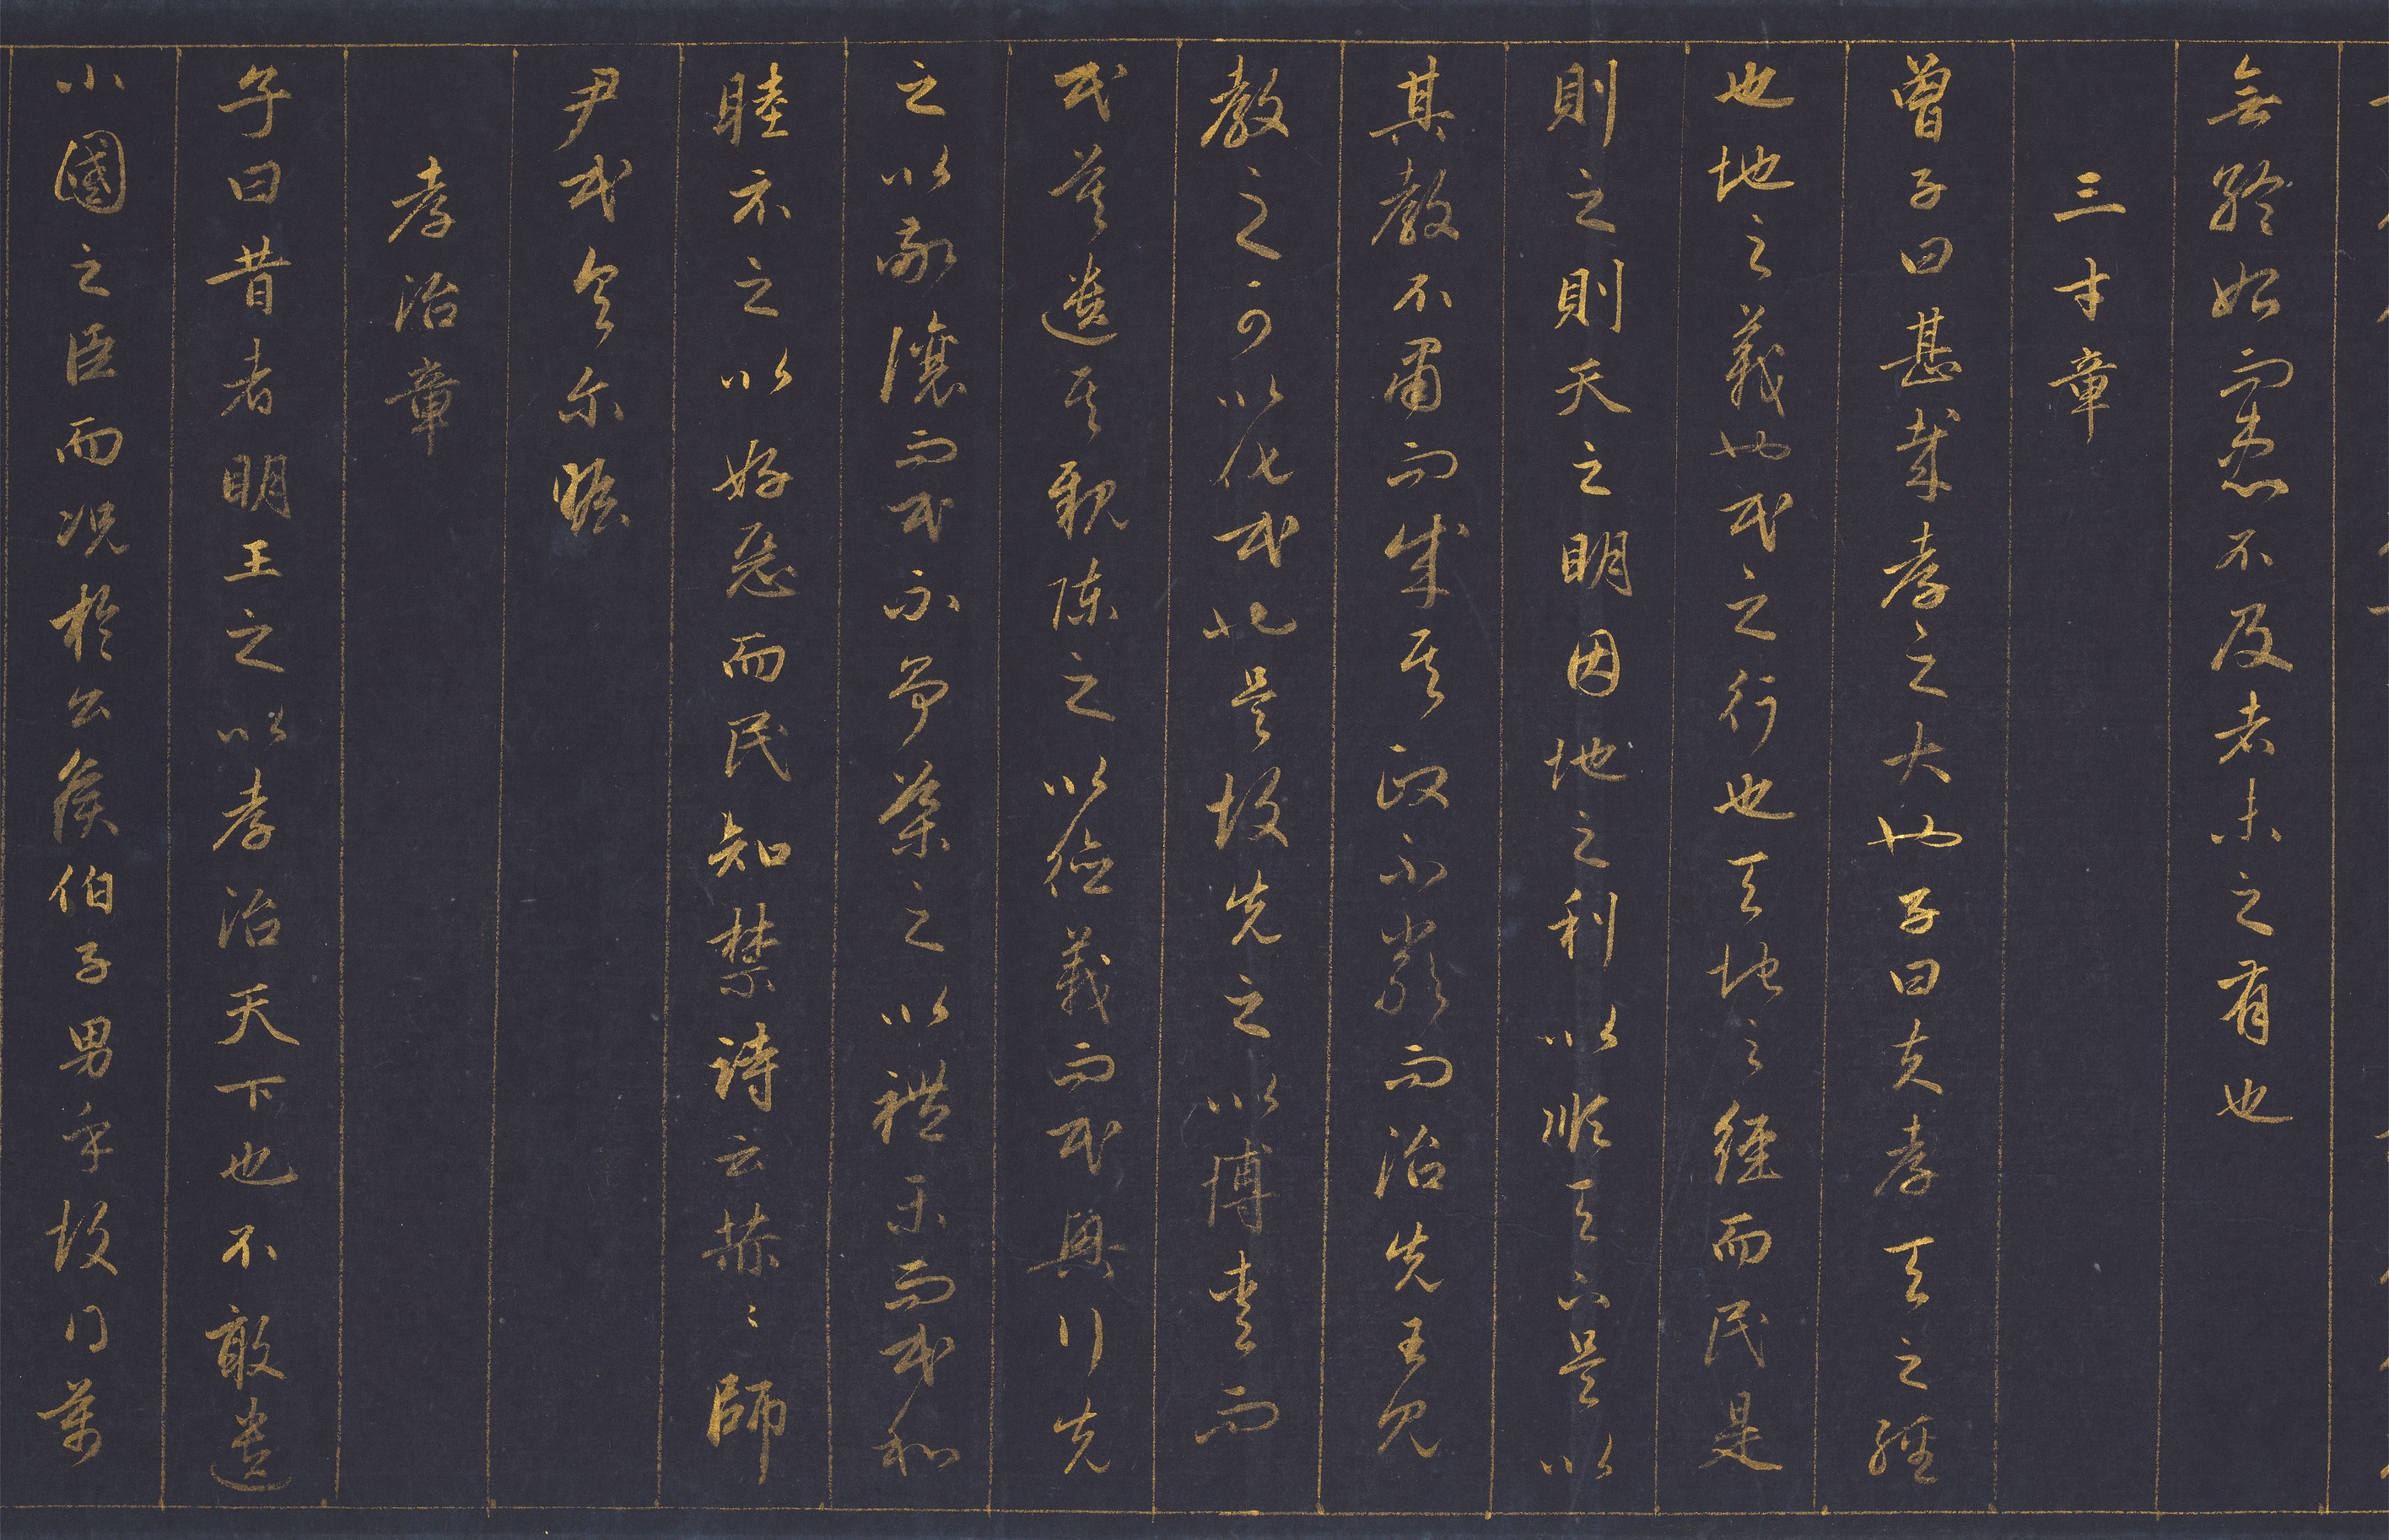 無終始而患不及者未之有也
三才章
曾子曰甚哉孝之大也子曰夫孝天之經
也地之義也民之行也天地之經而民是
則之則天之明因地之利以順天下是以
其教不肅而成其政不嚴而治先王見
教之可以化民也是故先之以博愛而
民莫遺其親陳之以德義而民興行先
之以敬讓而民不爭導之以禮樂而民和
睦示之以好惡而民知禁詩云赫〻師
尹民具尔瞻
孝治章
子曰昔者明王之以孝治天下也不敢遺
小國之臣而況於公侯伯子男乎故得萬